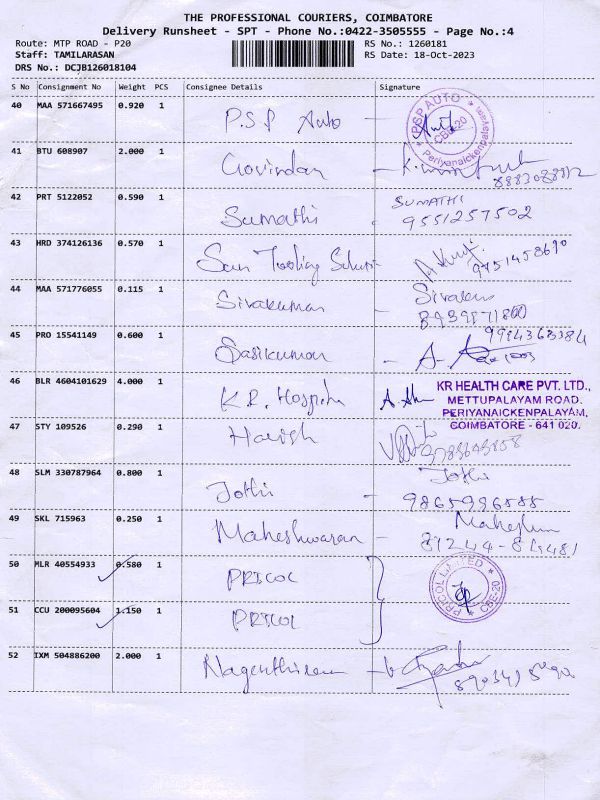 THE PROFESSIONAL COURIERS, COIMBATORE
Delivery Runsheet - SPT - Phone No.:0422-3505555 - Page No.:4
Route: MTP ROAD - P20
RS No.: 1260181
Staff: TAMILARASAN
RS Date: 18-Oct-2023
DRS No.: DCJB126018104
S No Consignment No Weight PCS Consignee Details Signature
40 MAA 571667495 0.920 1 P.S.P Auto
PSP AUTO CBE-20 Periyanaickenpalayam
41 BTU 608907 2.000 1 Govindan
42 PRT 5122052 0.590 1 Sumathi
SUMATHI
9551257502
43 HRD 374126136 0.570 1 Sun Tooling
9751458690
44 MAA 571776055 0.115 1 Sivakumar
45 PRO 15541149 0.600 1 Sasikumar
46 BLR 4604101629 4.000 1 K.R. Hospital
KR HEALTH CARE PVT. LTD.,
METTUPALAYAM ROAD.
PERIYANAICKENPALAYAM,
COIMBATORE - 641 020.
47 STY 109526 0.290 1 Harish
48 SLM 330787964 0.800 1 Jothi
Jothi
9865996588
49 SKL 715963 0.250 1 Maheshwaran
50 MLR 40554933 0.580 1 PRICOL
PRICOL LIMITED CBE-20
51 CCU 200095604 1.150 1 PRICOL
52 IXM 504886200 2.000 1